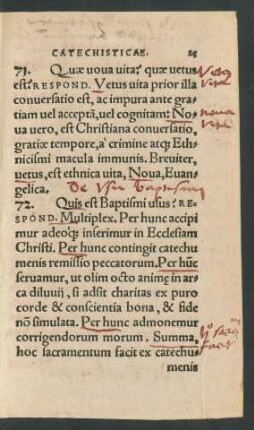 CATECHISTICAE.
71. Quæ noua uita? quæ uetus
est? RESPOND. Vetus uita prior illa
conuersatio est, ac impura ante gra-
tiam uel acceptã, uel cognitam: No-
ua uero, est Christiana conuersatio,
gratiæ tempore, a' crimine atq; Eth-
nicismi macula immunis. Breuiter,
uetus, est ethnica uita, Noua, Euan-
gelica.
De Usu Baptismi
72. Quis est Baptismi usus? RE-
SPOND. Multiplex. Per hunc accipi-
mur adeoq; inserimur in Ecclesiam
Christi. Per hunc contingit catechu
menis remissio peccatorum. Per hũc
seruamur, ut olim octo animę in ar-
ca diluuij, si adsit charitas ex puro
corde & conscientia bona, & fide
nõ simulata. Per hunc admonemur
corrigendorum morum. Summa,
hoc sacramentum facit ex catechu-
menis
noua